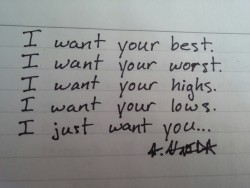 I want your best.
I want your worst.
I want your highs.
I want your lows.
I just want you...